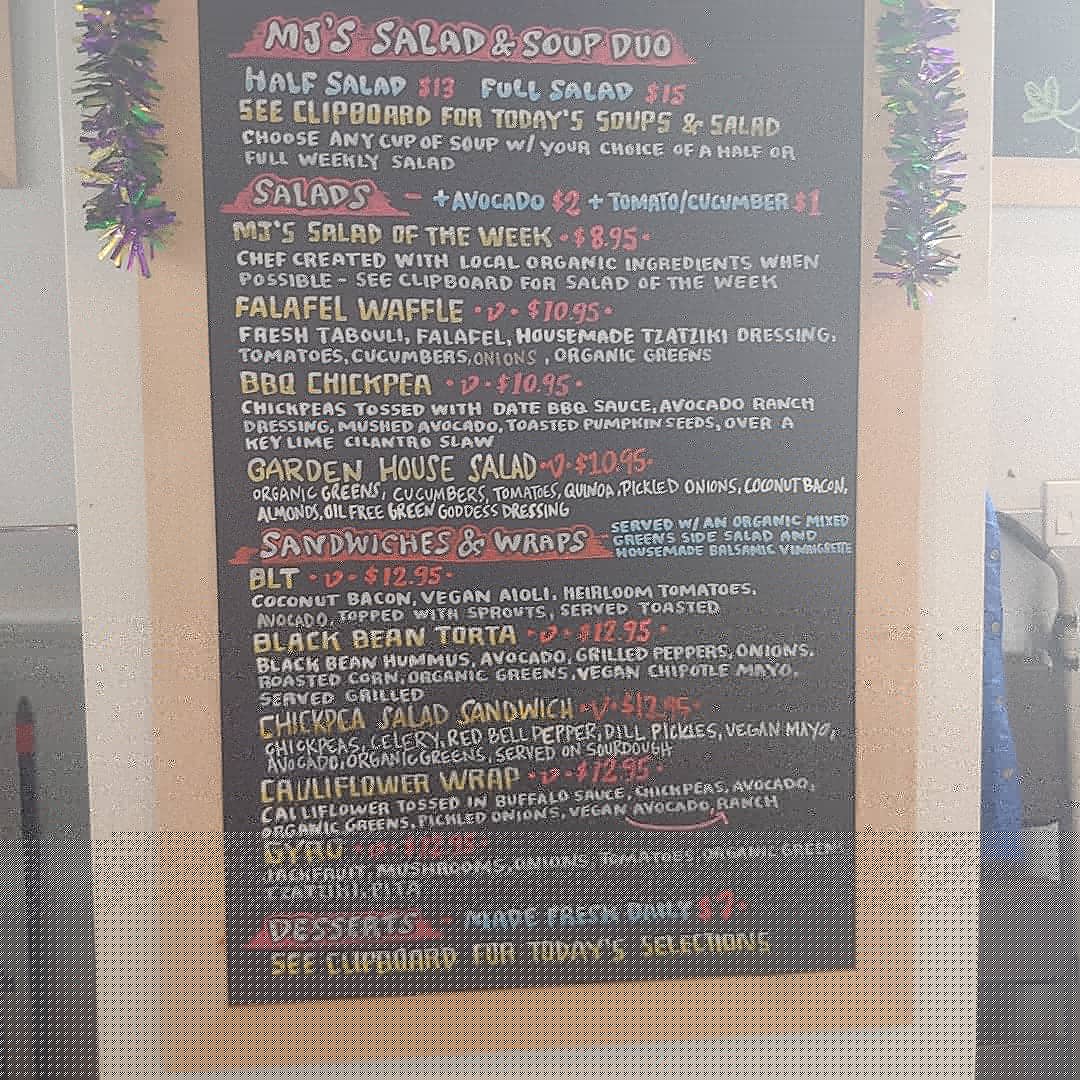 MJ'S SALAD & SOUP DUO
HALF SALAD $13 FULL SALAD $15
SEE CLIPBOARD FOR TODAY'S SOUPS & SALAD
CHOOSE ANY CUP OF SOUP W/ YOUR CHOICE OF A HALF OR
FULL WEEKLY SALAD
SALADS - + AVOCADO $2 + TOMATO/CUCUMBER $1
MJ'S SALAD OF THE WEEK • $8.95 •
CHEF CREATED WITH LOCAL ORGANIC INGREDIENTS WHEN
POSSIBLE - SEE CLIPBOARD FOR SALAD OF THE WEEK
FALAFEL WAFFLE • V • $10.95 •
FRESH TABOULI, FALAFEL, HOUSEMADE TZATZIKI DRESSING,
TOMATOES, CUCUMBERS, ONIONS, ORGANIC GREENS
BBQ CHICKPEA • V • $10.95 •
CHICKPEAS TOSSED WITH DATE BBQ SAUCE, AVOCADO RANCH
DRESSING, MUSHED AVOCADO, TOASTED PUMPKIN SEEDS, OVER A
KEY LIME CILANTRO SLAW
GARDEN HOUSE SALAD • V • $10.95 •
ORGANIC GREENS, CUCUMBERS, TOMATOES, QUINOA, PICKLED ONIONS, COCONUT BACON,
ALMONDS, OIL FREE GREEN GODDESS DRESSING
SANDWICHES & WRAPS - SERVED W/ AN ORGANIC MIXED
GREENS SIDE SALAD AND
HOUSEMADE BALSAMIC VINAIGRETTE
BLT • V • $12.95 •
COCONUT BACON, VEGAN AIOLI, HEIRLOOM TOMATOES,
AVOCADO, TOPPED WITH SPROUTS, SERVED TOASTED
BLACK BEAN TORTA • V • $12.95 •
BLACK BEAN HUMMUS, AVOCADO, GRILLED PEPPERS, ONIONS,
ROASTED CORN, ORGANIC GREENS, VEGAN CHIPOTLE MAYO,
SERVED GRILLED
CHICKPEA SALAD SANDWICH • V • $12.95 •
CHICKPEAS, CELERY, RED BELL PEPPER, DILL PICKLES, VEGAN MAYO,
AVOCADO, ORGANIC GREENS, SERVED ON SOURDOUGH
CAULIFLOWER WRAP • V • $12.95 •
CAULIFLOWER TOSSED IN BUFFALO SAUCE, CHICKPEAS, AVOCADO,
ORGANIC GREENS, PICKLED ONIONS, VEGAN AVOCADO, RANCH
GYRO • V • $12.95 •
JACKFRUIT, MUSHROOMS, ONIONS, TOMATOES, ORGANIC GREENS
PITA
DESSERTS - MADE FRESH DAILY $7 •
SEE CLIPBOARD FOR TODAY'S SELECTIONS